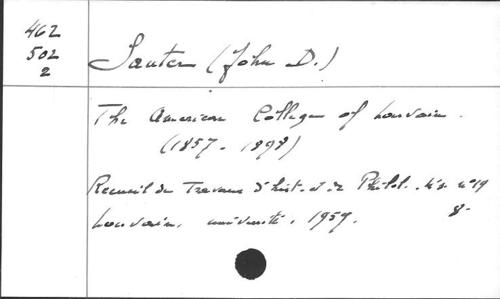 462
502
2
Sauter (John D.)
The American College of Louvain.
(1857-1898)
Recueil de Travaux d'hist. et de Philol. 4e s. nº 19
Louvain, université, 1959. 8-